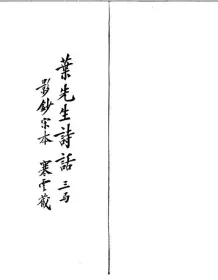 葉先生詩話三卷
影鈔宋本 寒雲藏